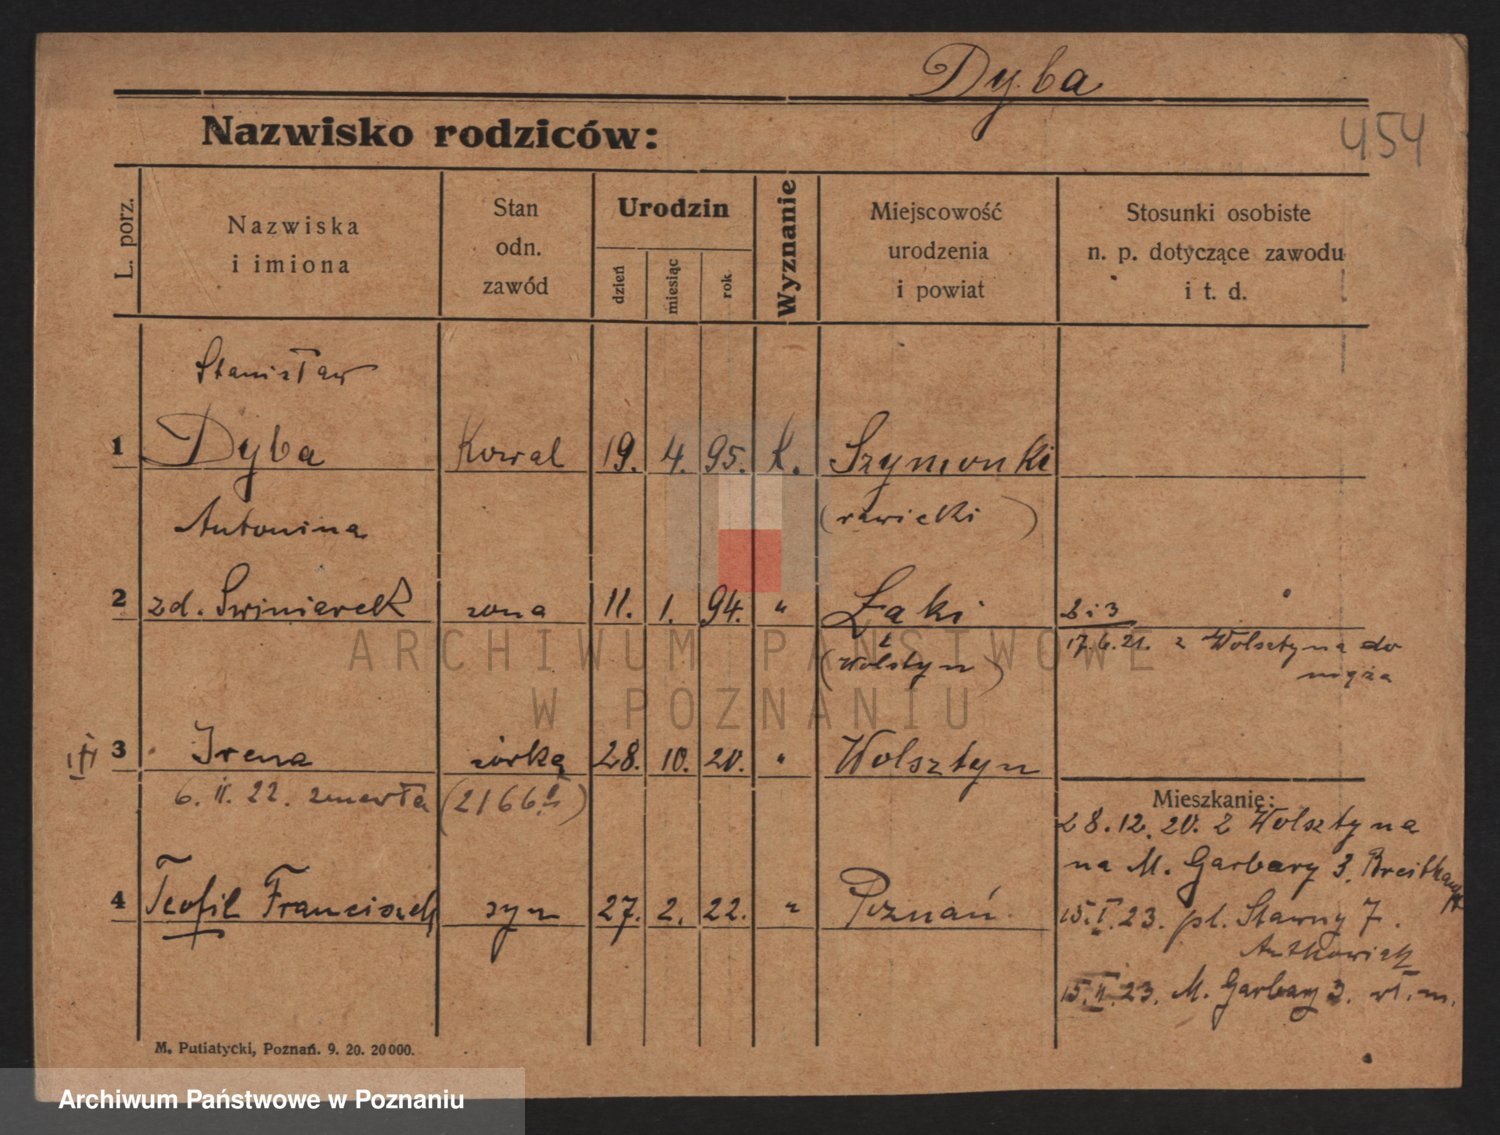 Dyba
Nazwisko rodziców:
454
L. porz.
Nazwiska
i imiona
Stan
odn.
zawód
Urodzin
dzień
miesiąc
rok
Wyznanie
Miejscowość
urodzenia
i powiat
Stosunki osobiste
n. p. dotyczące zawodu
i t. d.
Stanisław
1 Dyba Kowal 19. 4. 95. k. Szymonki
(rawicki)
Antonina
2 zd. Swiniarek żona 11. 1. 94. " Łąki 2 i 3
(Wolsztyn)
17.6.21. z Wolsztyna do
męża
3 Irena córka 28. 10. 20. " Wolsztyn
6. II. 22. zmarła (2166)
Mieszkanie:
28.12.20. z Wolsztyna
na M. Garbary 3. Breitkampf
4 Teofil Franciszek syn 27. 2. 22. " Poznań
15.I.23. pl. Stawny 7.
Antkowiak
15.II.23. M. Garbary 3. wł. m.
M. Putiatycki, Poznań. 9. 20. 20000.
ARCHIWUM PAŃSTWOWE
W POZNANIU
Archiwum Państwowe w Poznaniu